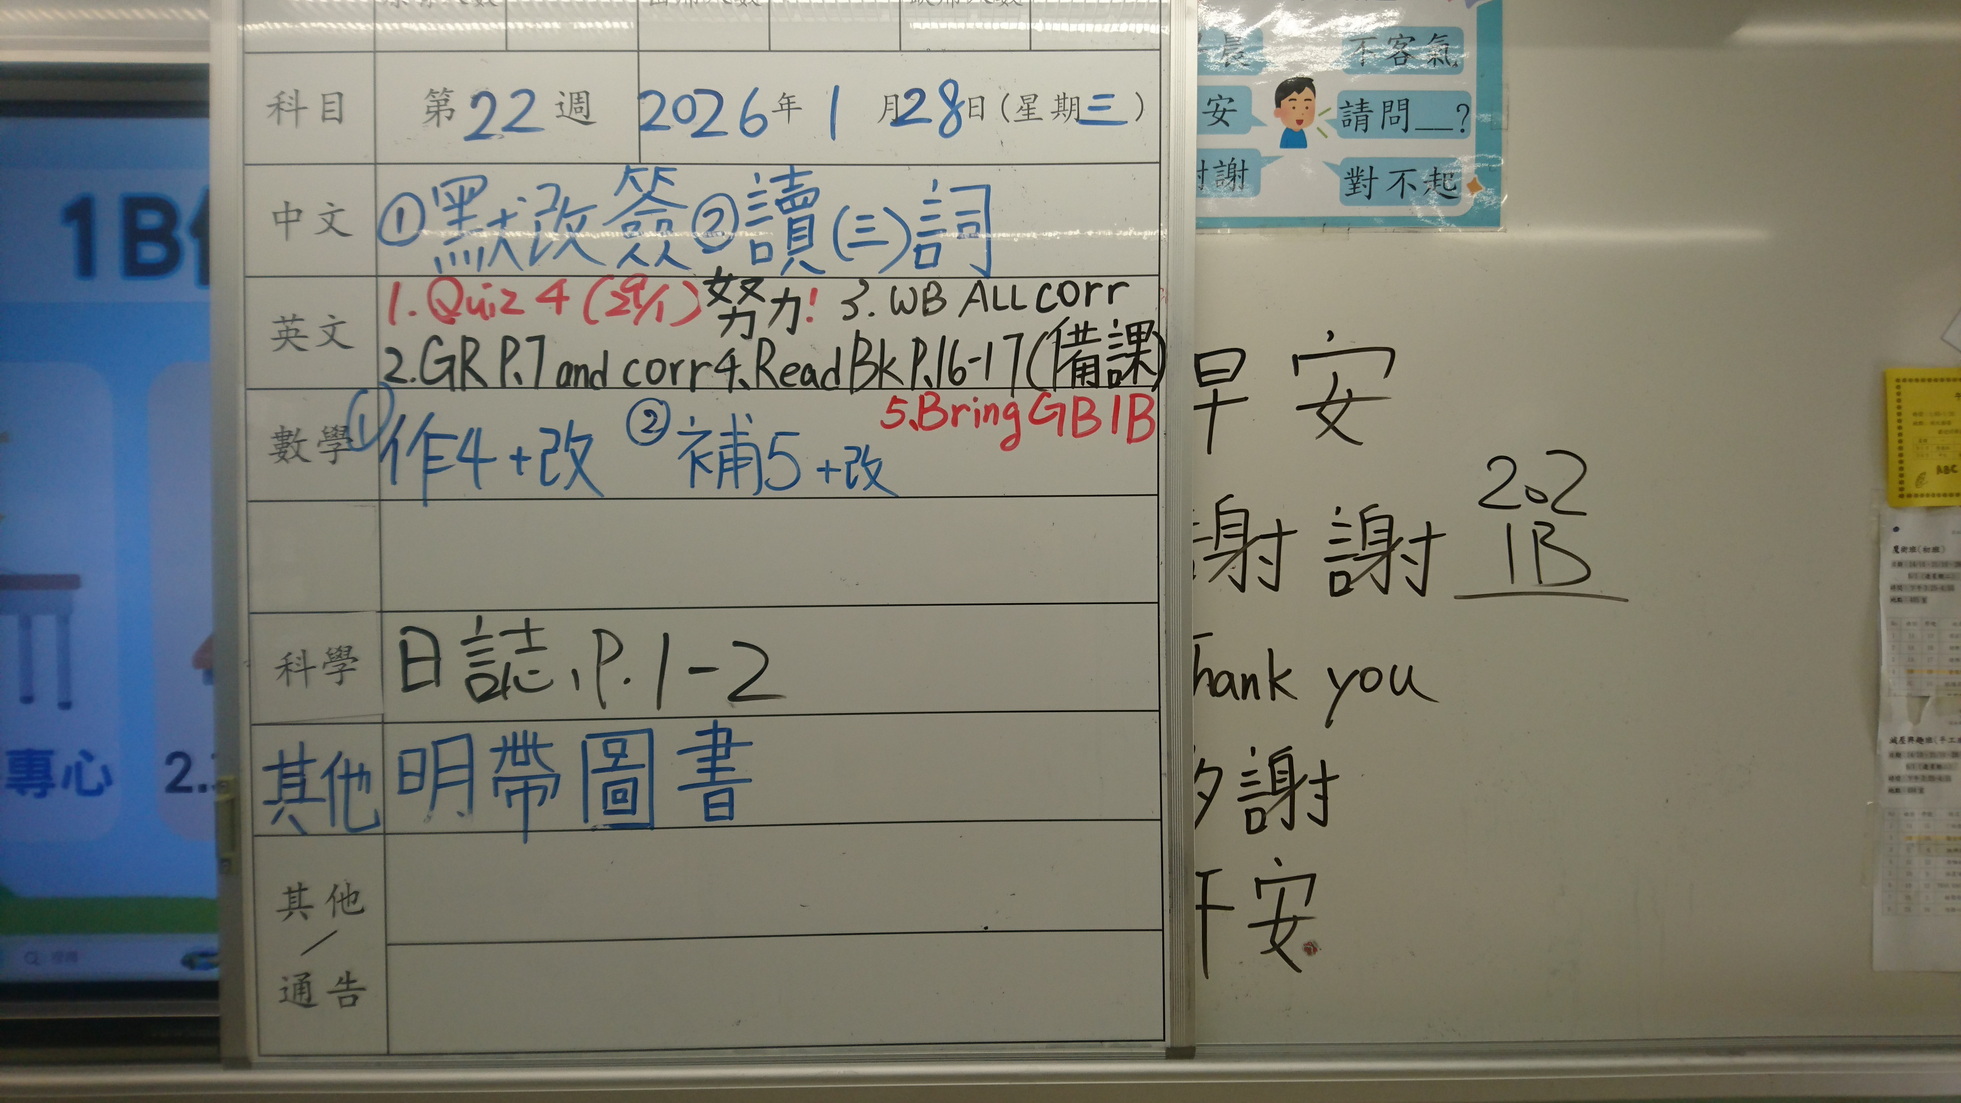 科目 第22週 2026年1月28日(星期三)
中文 ①默改簽②讀(三)詞
英文 1.Quiz 4 (29/1) 努力! 3. WB ALL corr
2.GR P.7 and corr 4.Read Bk P.16-17(備課)
5.Bring GB 1B
數學 ①作4+改 ②補5+改
科學 日誌,P.1-2
其他 明帶圖書
其他
/
通告
1B
專心
2.
晨
不客氣
安
請問__?
謝
對不起
早安
謝謝 202
1B
Thank you
多謝
午安
ABC